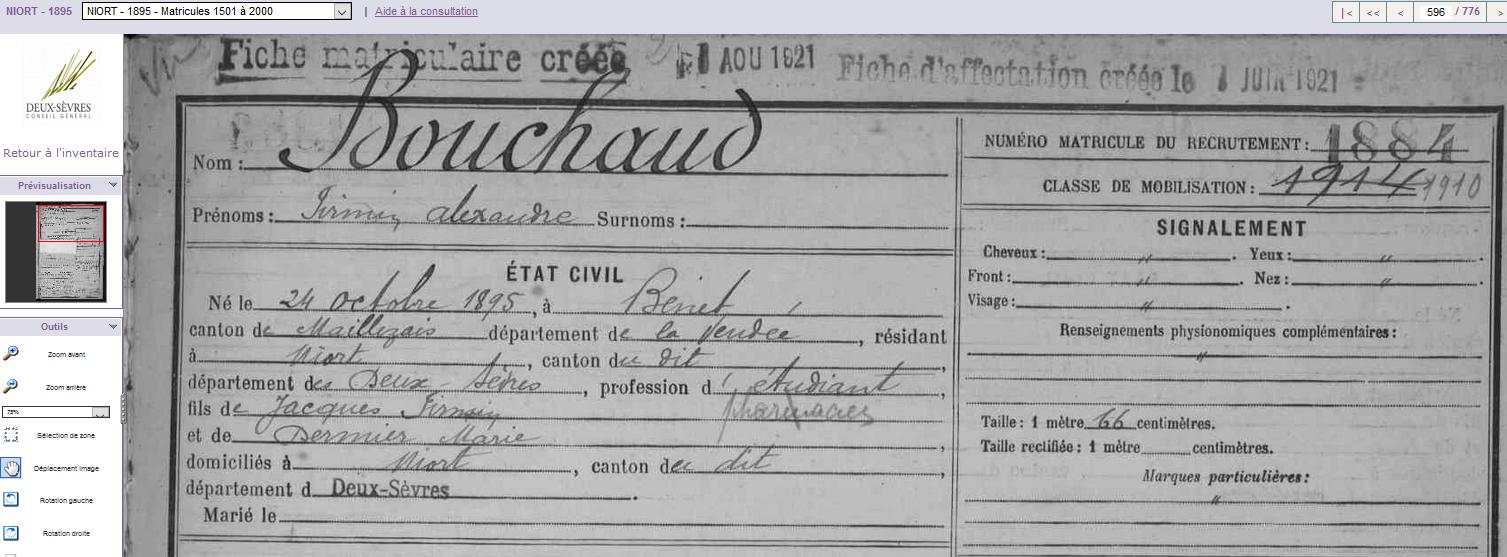 NIORT - 1895 NIORT - 1895 - Matricules 1501 à 2000 | Aide à la consultation |< << < 596 / 776 >
DEUX-SÈVRES
CONSEIL GÉNÉRAL
Retour à l'inventaire
Prévisualisation
Outils
Zoom avant
Zoom arrière
75%
Sélection de zone
Déplacement image
Rotation gauche
Rotation droite
Fiche matriculaire créée 1 AOU 1921 Fiche d'affectation créée le 1 JUIN 1921
Nom : Bouchaud
Prénoms : Firmin alexandre Surnoms :
ÉTAT CIVIL
Né le 24 octobre 1895, à Benet
canton de Maillezais département de la Vendée, résidant
à Niort, canton du dit,
département des Deux-Sèvres, profession d'étudiant,
fils de Jacques Firmin pharmacies
et de Dermier Marie,
domiciliés à Niort, canton du dit,
département d Deux-Sèvres.
Marié le
NUMÉRO MATRICULE DU RECRUTEMENT : 1884
CLASSE DE MOBILISATION : 1914 1910
SIGNALEMENT
Cheveux : " . Yeux : " .
Front : " . Nez : " .
Visage : " .
Renseignements physionomiques complémentaires :
"
Taille : 1 mètre 66 centimètres.
Taille rectifiée : 1 mètre centimètres.
Marques particulières :
"